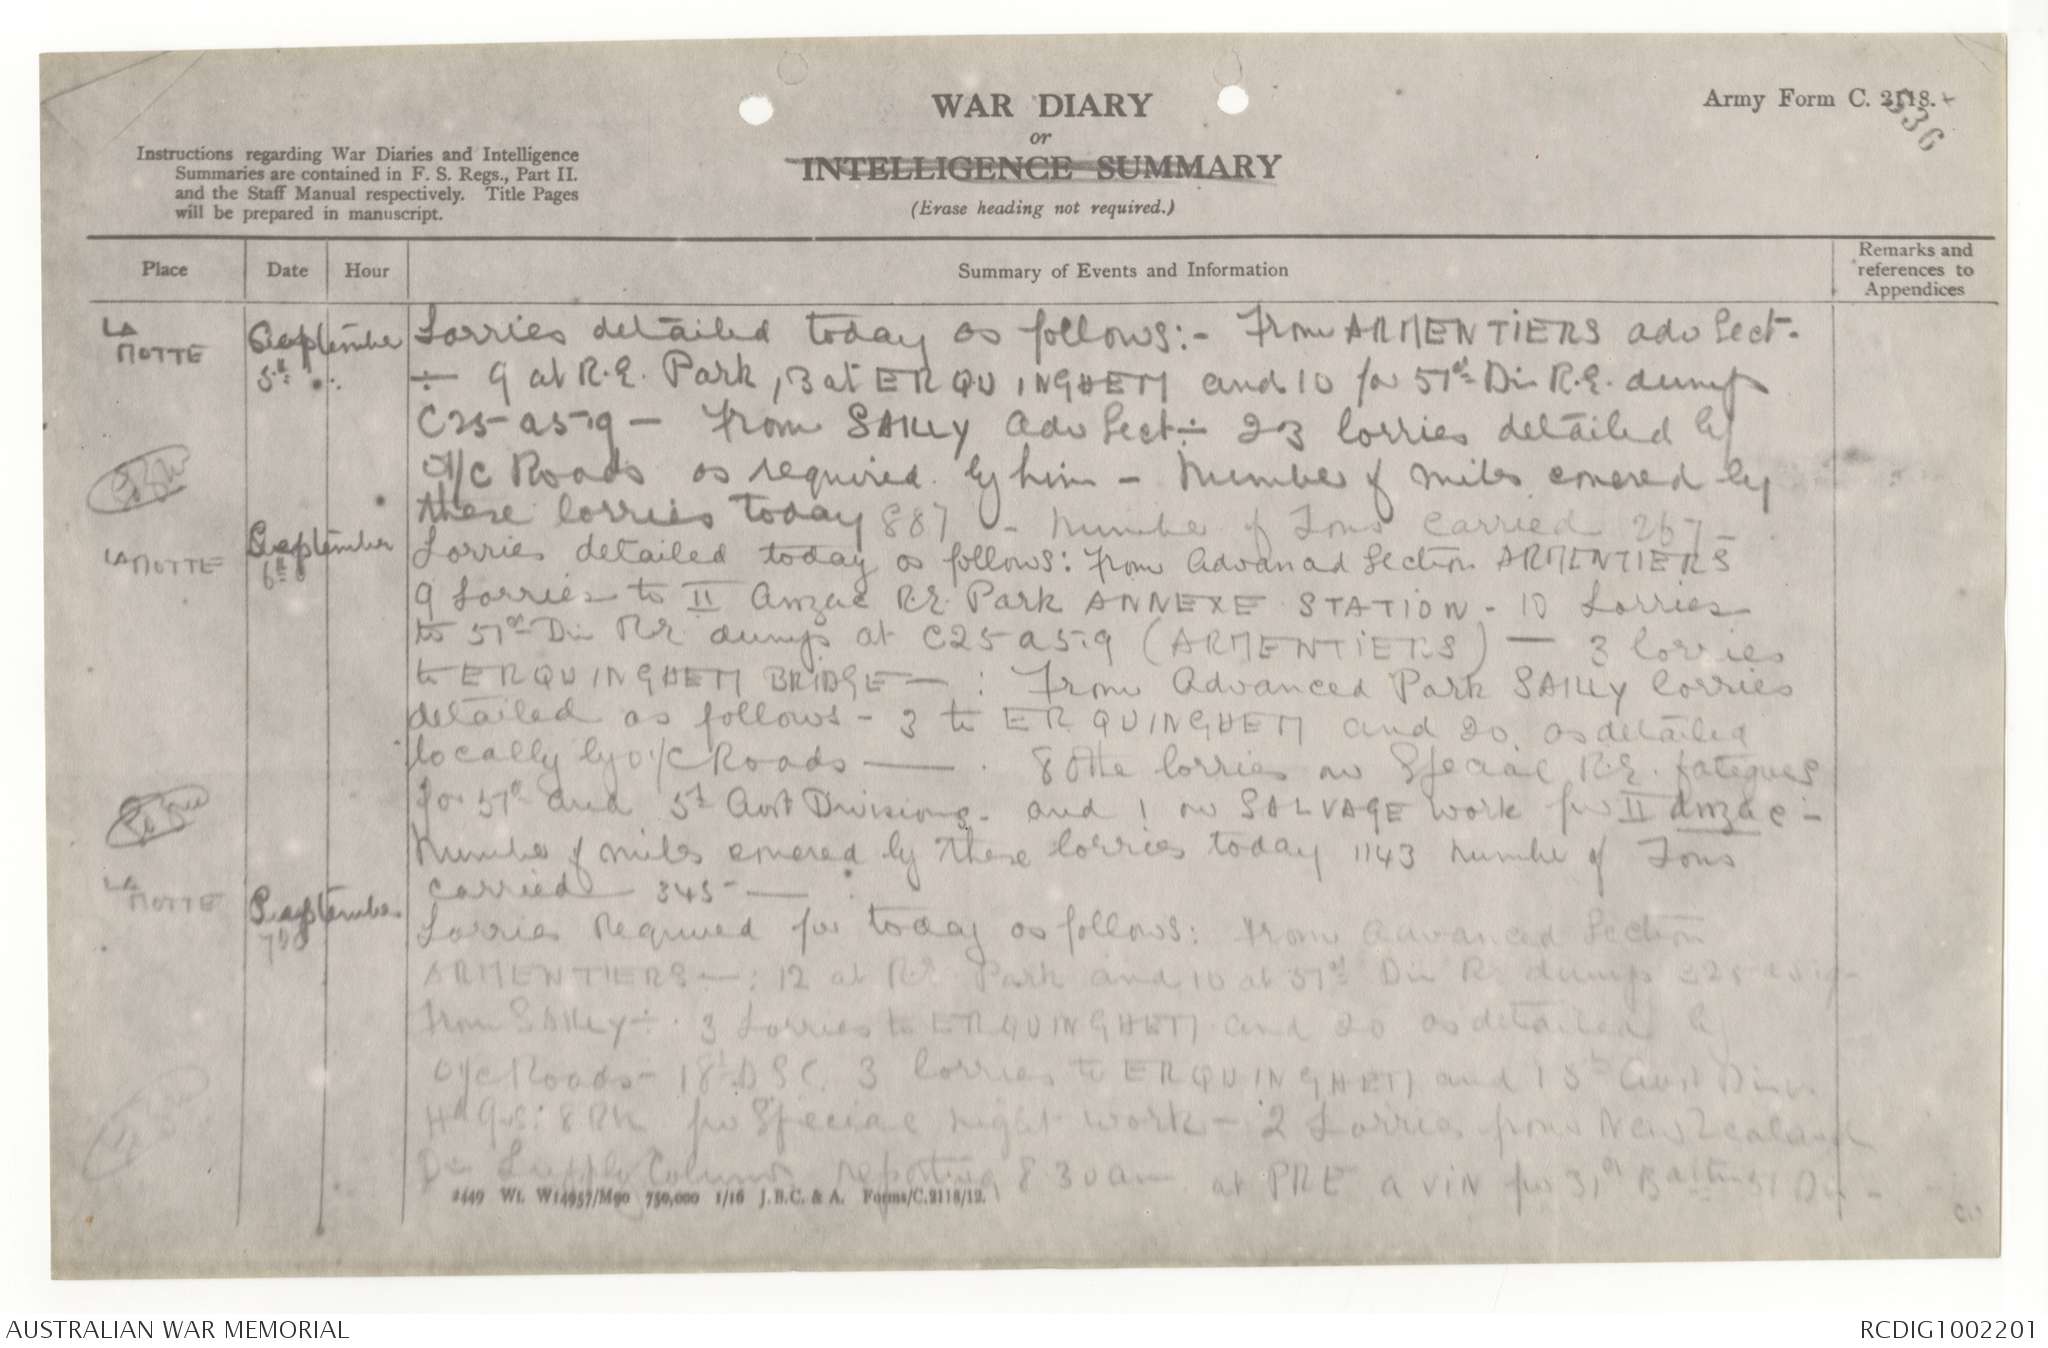 WAR DIARY
or
INTELLIGENCE SUMMARY
(Erase heading not required.)
Army Form C. 2118.
336
Instructions regarding War Diaries and Intelligence
Summaries are contained in F. S. Regs., Part II.
and the Staff Manual respectively. Title Pages
will be prepared in manuscript.
Place
Date
Hour
Summary of Events and Information
Remarks and
references to
Appendices
LA MOTTE
September 5th
Lorries detailed today as follows:- From ARMENTIERS adv Sect.
÷ 9 at R.E. Park, 3 at ERQUINGHEM and 10 for 57th Div R.E. dump
C25-a5.9 — From SAILLY Adv Sect ÷ 23 lorries detailed by
O/C Roads as required by him - Number of miles covered by
these lorries today 887 - Number of Tons carried 267 -
LA MOTTE
September 6th
Lorries detailed today as follows: From Advanced Section ARMENTIERS
9 Lorries to II Anzac R.E. Park ANNEXE STATION - 10 Lorries
to 57th Div R.E. dump at C25-a5.9 (ARMENTIERS) — 3 lorries
to ERQUINGHEM BRIDGE — : From Advanced Park SAILLY lorries
detailed as follows - 3 to ERQUINGHEM and 20 as detailed
locally by O/C Roads — 8 lorries on Special R.E. fatigues
for 57th and 5th Aust Divisions - and 1 on SALVAGE work for II Anzac -
Number of miles covered by these lorries today 1143 Number of Tons
carried 345 —
LA MOTTE
September 7th
Lorries Required for today as follows: From Advanced Section
ARMENTIERS — : 12 at R.E. Park and 10 at 57th Div R.E dump C25-a5.9 -
From SAILLY ÷ 3 Lorries to ERQUINGHEM and 20 as detailed by
O/C Roads - 18th D.S.C. 3 lorries to ERQUINGHEM and 1 5th Aust Divn
Hd Qrs: 8 for Special night work - 2 Lorries from New Zealand
Div Supply Column reporting 8 30 am at PRE a VIN for 31st Battn 51 Div -
2449 Wt. W14957/M90 750,000 1/16 J.B.C. & A. Forms/C.2118/12.
AUSTRALIAN WAR MEMORIAL
RCDIG1002201